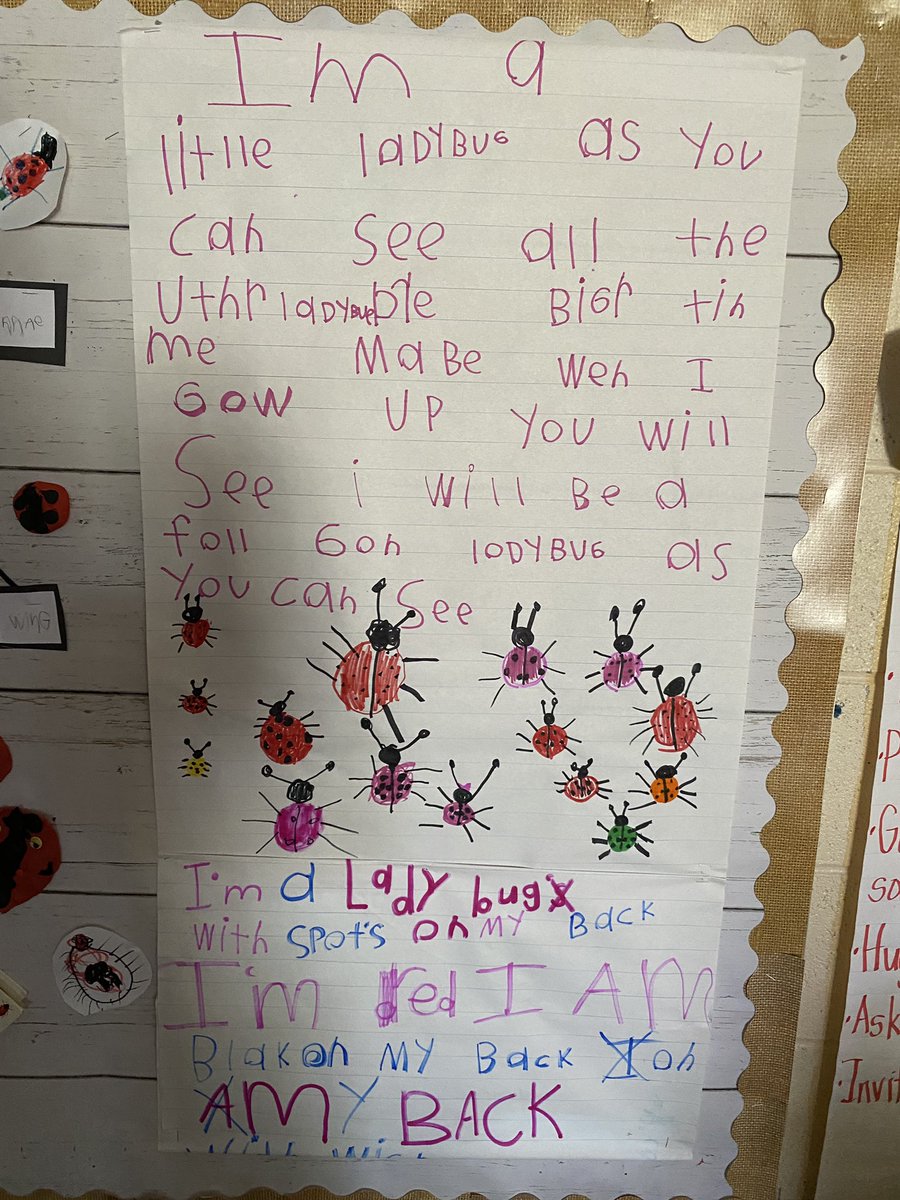 Im a
littlle lADYBUG as You
can See all the
Uthr lADYBUG are BiGr tin
me MaBe weh I
GOW UP YOU will
See i will Be a
foll Gon lODYBUG as
You can See
I'm a Lady bug
with SPOTS on MY Back
I'm red I AM
Blak on MY Back on
MY BACK
WinG
P
G
so
Hu
Ask
Invit